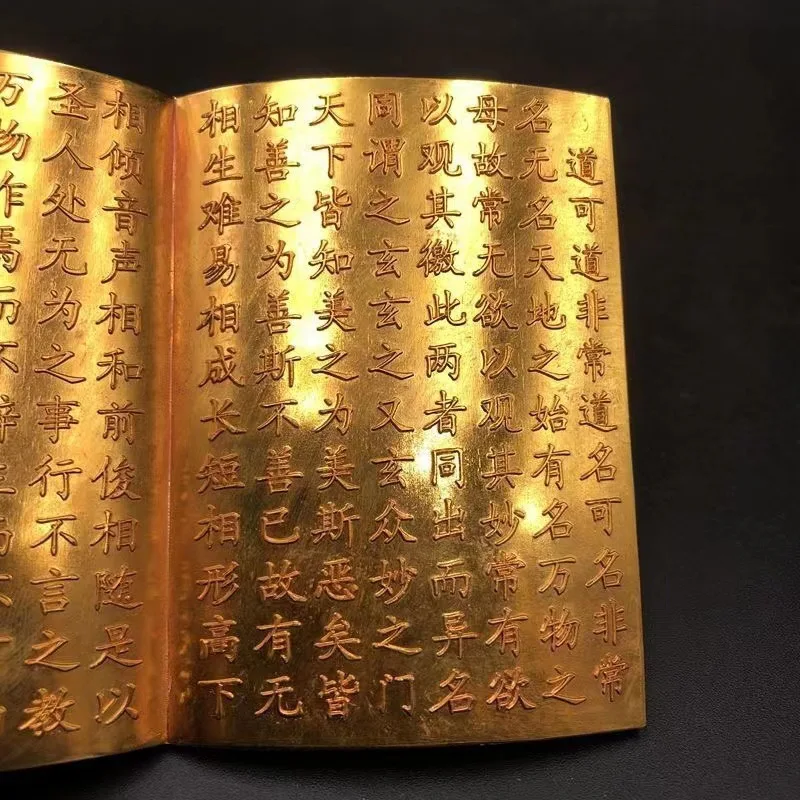 道可道非常道名可名非常
名无名天地之始有名万物之
母故常无欲以观其妙常有欲
以观其徼此两者同出而异名
同谓之玄玄之又玄众妙之门
天下皆知美之为美斯恶矣皆
知善之为善斯不善已故有无
相生难易相成长短相形高下
相倾音声相和前俊相随是以
圣人处无为之事行不言之教
万物作焉